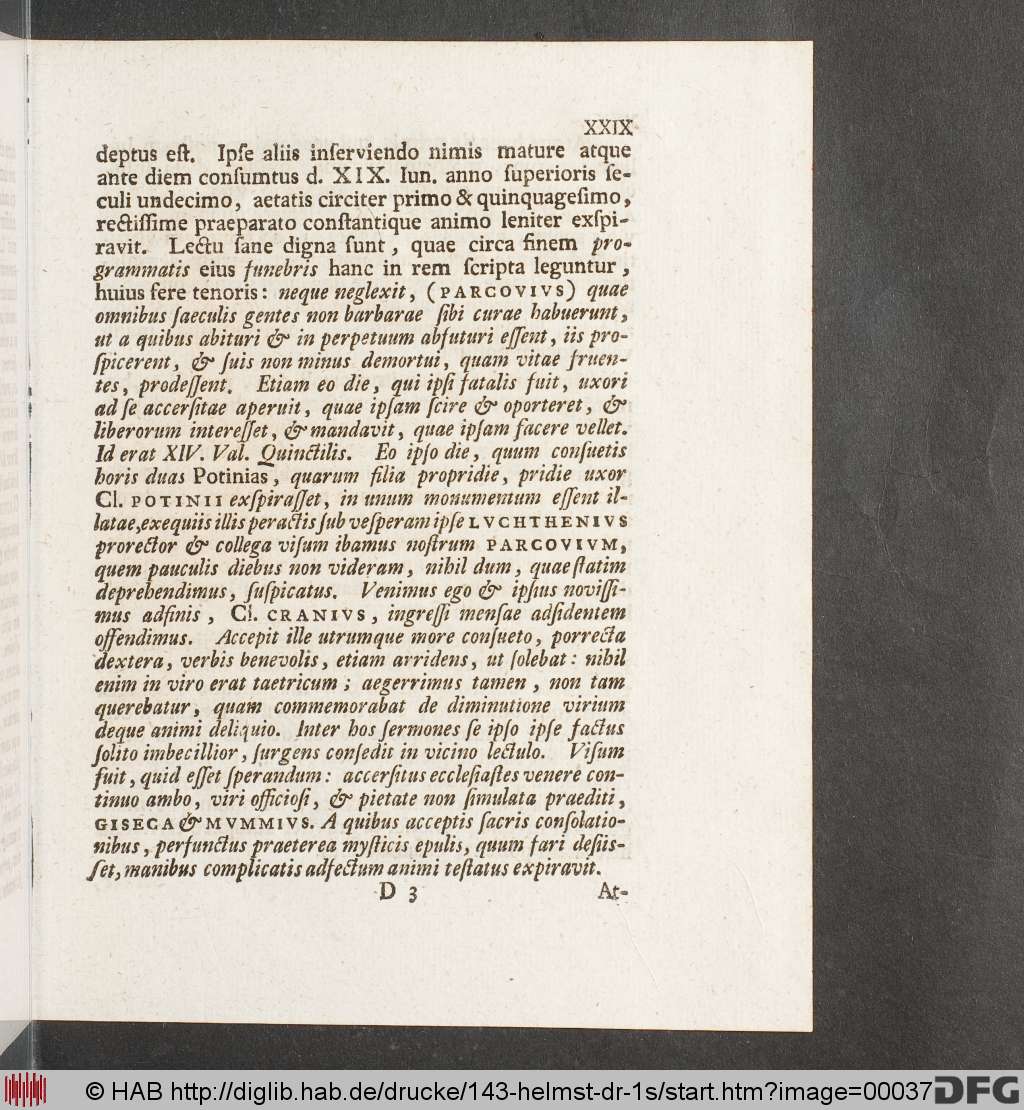 XXIX
deptus eſt. Ipſe aliis inſerviendo nimis mature atque
ante diem conſumtus d. XIX. Iun. anno ſuperioris ſe-
culi undecimo, aetatis circiter primo & quinquageſimo,
rectiſſime praeparato conſtantique animo leniter exſpi-
ravit. Lectu ſane digna ſunt, quae circa finem pro-
grammatis eius funebris hanc in rem ſcripta leguntur,
huius fere tenoris: neque neglexit, (PARCOVIVS) quae
omnibus ſaeculis gentes non barbarae ſibi curae habuerunt,
ut a quibus abituri & in perpetuum abfuturi eſſent, iis pro-
ſpicerent, & ſuis non minus demortui, quam vitae fruen-
tes, prodeſſent. Etiam eo die, qui ipſi fatalis fuit, uxori
ad ſe accerſitae aperuit, quae ipſam ſcire & oporteret, &
liberorum intereſſet, & mandavit, quae ipſam facere vellet.
Id erat XIV. Val. Quinctilis. Eo ipſo die, quum conſuetis
horis duas Potinias, quarum filia propridie, pridie uxor
Cl. POTINII exſpiraſſet, in unum monumentum eſſent il-
latae, exequiis illis peractis ſub veſperam ipſe LVCHTHENIVS
prorector & collega viſum ibamus noſtrum PARCOVIVM,
quem pauculis diebus non videram, nihil dum, quae ſtatim
deprehendimus, ſuſpicatus. Venimus ego & ipſius noviſſi-
mus adfinis, Cl. CRANIVS, ingreſſi menſae adſidentem
offendimus. Accepit ille utrumque more conſueto, porrecta
dextera, verbis benevolis, etiam arridens, ut ſolebat: nihil
enim in viro erat taetricum; aegerrimus tamen, non tam
querebatur, quam commemorabat de diminutione virium
deque animi deliquio. Inter hos ſermones ſe ipſo ipſe factus
ſolito imbecillior, ſurgens conſedit in vicino lectulo. Viſum
fuit, quid eſſet ſperandum: accerſitus eccleſiaſtes venere con-
tinuo ambo, viri officioſi, & pietate non ſimulata praediti,
GISECA & MVMMIVS. A quibus acceptis ſacris conſolatio-
nibus, perfunctus praeterea myſticis epulis, quum fari deſiiſ-
ſet, manibus complicatis adfectum animi teſtatus expiravit.
D 3 At-
© HAB http://diglib.hab.de/drucke/143-helmst-dr-1s/start.htm?image=00037
DFG